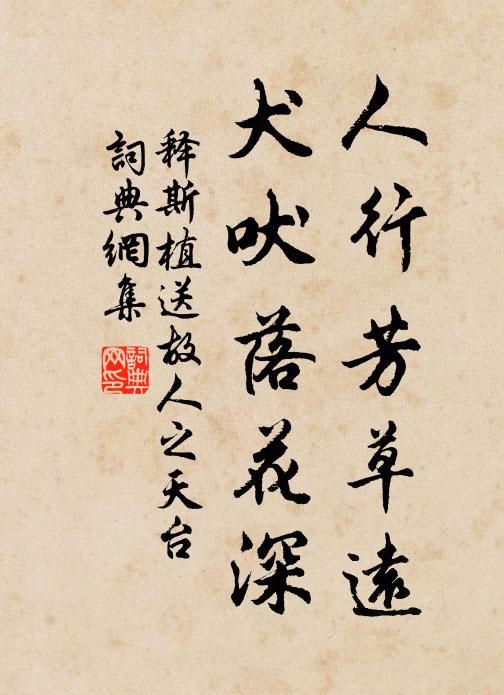 人行芳草遠
犬吠落花深
释斯植送故人之天台
詞典網集
詞典网印